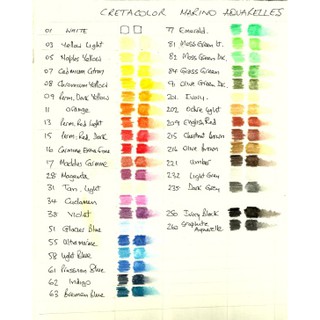 CRETACOLOR MARINO AQUARELLES
01 WHITE
03 Yellow Light
05 Naples Yellow
07 Cadmium Citron
08 Chromium Yellow
09 Perm. Dark Yellow
11 Orange
13 Perm. Red Light
15 Perm. Red Dark
16 Carmine Extra Fine
17 Madder Carmine
28 Magenta
31 Tan. Light
34 Cyclamen
38 Violet
51 Glacier Blue
55 Ultramarine
58 Light Blue
61 Prussian Blue
62 Indigo
63 Bremen Blue
77 Emerald.
81 Moss Green Lt.
82 Moss Green Dk.
84 Grass Green
91 Olive Green Dk.
201 Ivory.
202 Ochre Light
209 English Red
215 Chestnut brown
216 Olive brown
221 Umber
232 Light Grey
235 Dark Grey
250 Ivory Black
260 Graphite Aquarelle